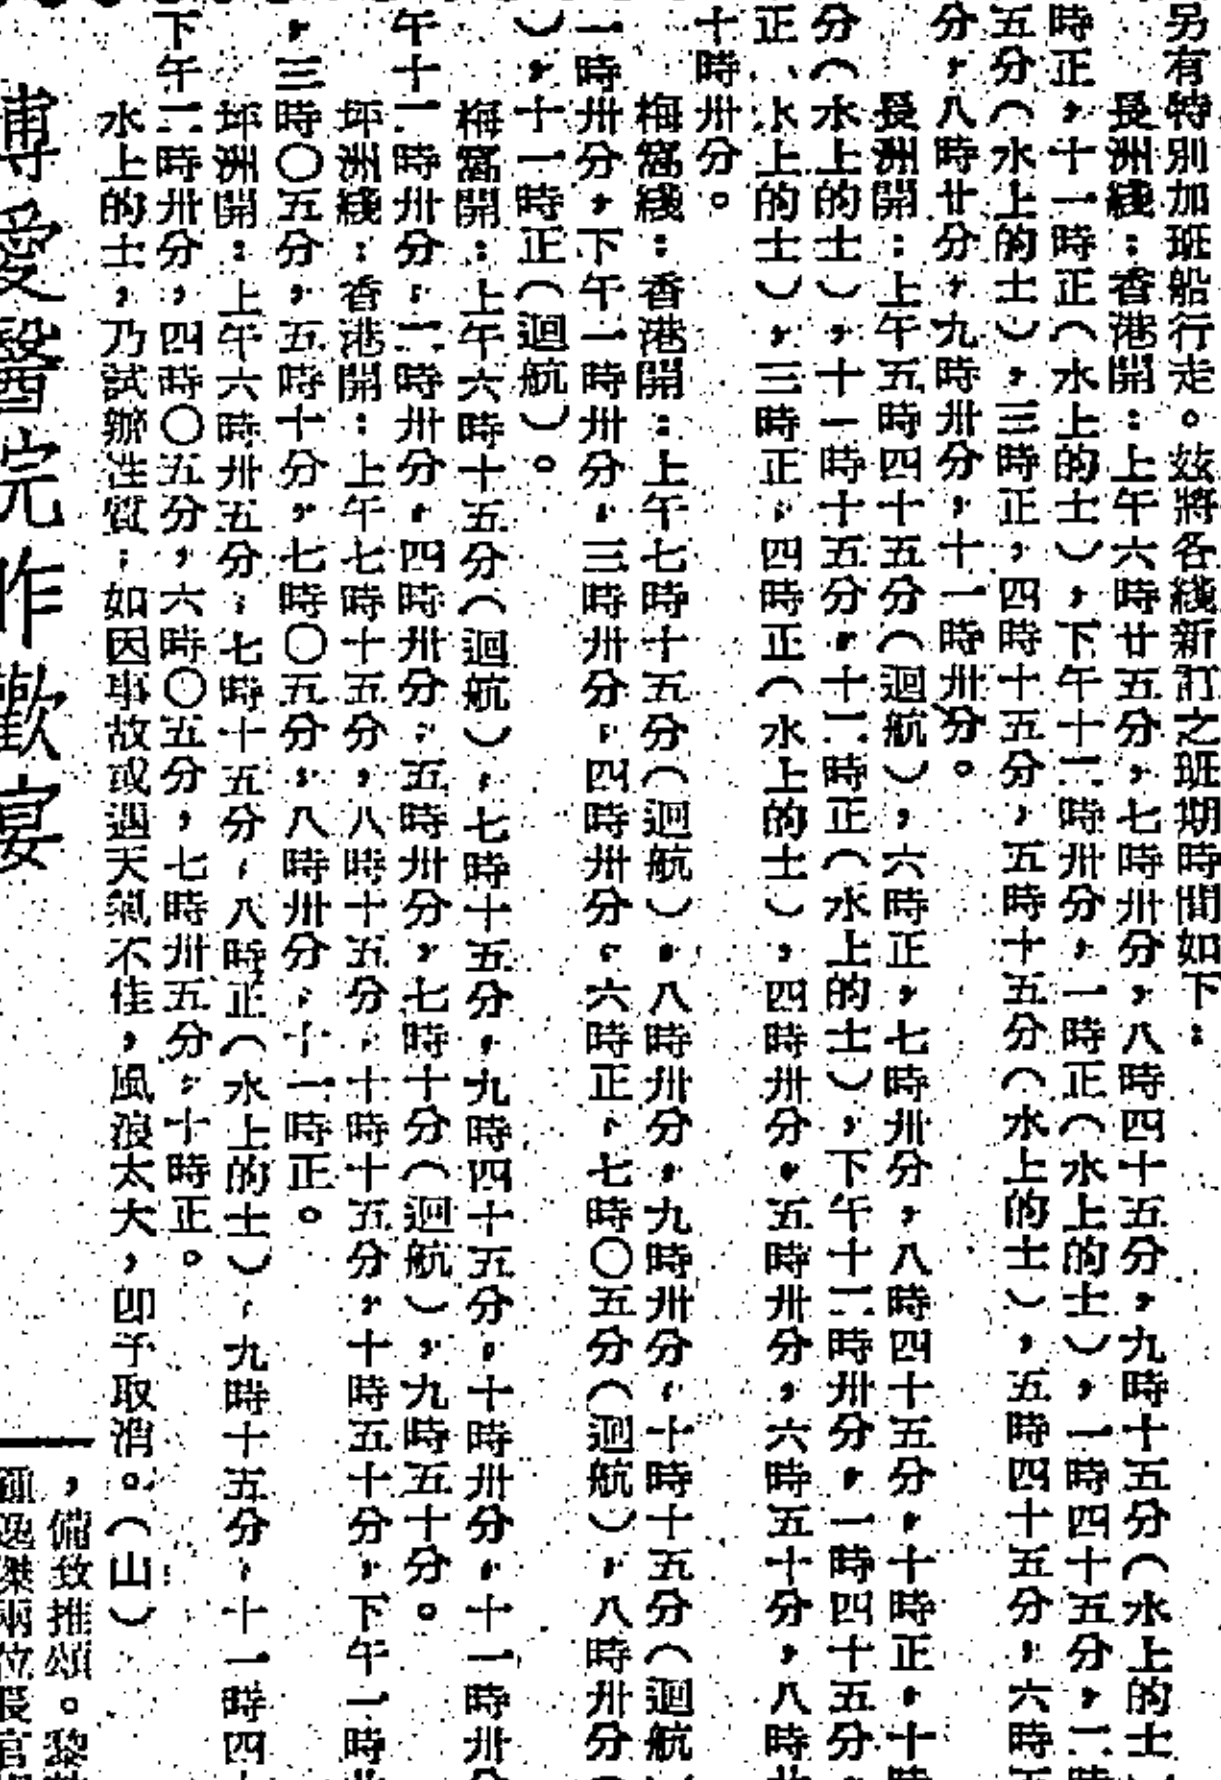 另有特別加班船行走。玆將各綫新訂之班期時間如下:
長洲綫:香港開:上午六時廿五分,七時卅分,八時四十五分,九時十五分(水上的士
時正,十一時正(水上的士),下午十二時卅分,一時正(水上的士),一時四十五分,二時
五分(水上的士),三時正,四時十五分,五時十五分(水上的士),五時四十五分,六時
分,八時廿分,九時卅分,十一時卅分。
長洲開:上午五時四十五分(迴航),六時正,七時卅分,八時四十五分,十時正,十時
分(水上的士),十一時十五分,十二時正(水上的士),下午十二時卅分,一時四十五分,
正、水上的士),三時正,四時正(水上的士),四時卅分,五時卅分,六時五十分,八時
十時卅分。
梅窩綫:香港開:上午七時十五分(迴航),八時卅分,九時卅分,十時十五分(迴航
一時卅分,下午一時卅分,三時卅分,四時卅分,六時正,七時〇五分(迴航),八時卅分
),十一時正(迴航)。
梅窩開:上午六時十五分(迴航),七時十五分,九時四十五分,十時卅分,十一時卅
午十二時卅分,二時卅分,四時卅分,五時卅分,七時十分(迴航),九時五十分。
坪洲綫:香港開:上午七時十五分,八時十五分,十時十五分,十時五十分,下午一時
,三時〇五分,五時十分,七時〇五分,八時卅分,十一時正。
坪洲開:上午六時卅五分,七時十五分,八時正(水上的士),九時十五分,十一時四
下午二時卅分,四時〇五分,六時〇五分,七時卅五分,十時正。
水上的士,乃試辦性質;如因事故或遇天氣不佳,風浪太大,即予取消。(山)
博愛醫院昨歡宴
,備致推頌。黎
逸傑兩位長官